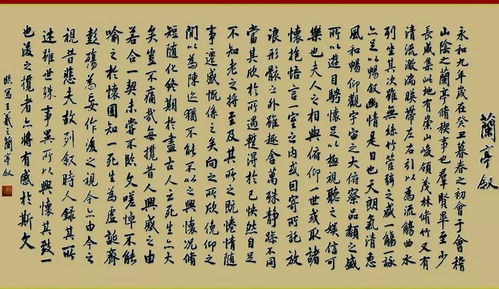 蘭亭敘
永和九年歲在癸丑暮春之初會于會稽
山陰之蘭亭脩稧事也群賢畢至少
長咸集此地有崇山峻領茂林脩竹又有
清流激湍暎帶左右引以為流觴曲水
列坐其次雖無絲竹管弦之盛一觴一詠
亦足以暢敘幽情是日也天朗氣清惠
風和暢仰觀宇宙之大俯察品類之盛
所以遊目騁懷足以極視聽之娛信可
樂也夫人之相與俯仰一世或取諸
懷抱悟言一室之內或因寄所託放
浪形骸之外雖趣舍萬殊靜躁不同
當其欣於所遇蹔得於己怏然自足
不知老之將至及其所之既惓情隨
事遷感慨係之矣向之所欣俛仰之
間以為陳迹猶不能不以之興懷況脩
短隨化終期於盡古人云死生亦大
矣豈不痛哉每攬昔人興感之由
若合一契未嘗不臨文嗟悼不能
喻之於懷固知一死生為虛誕齊
彭殤為妄作後之視今亦由今之
視昔悲夫故列敘時人錄其所
述雖世殊事異所以興懷其致一
也後之攬者亦將有感於斯文
寫王羲之蘭亭敘